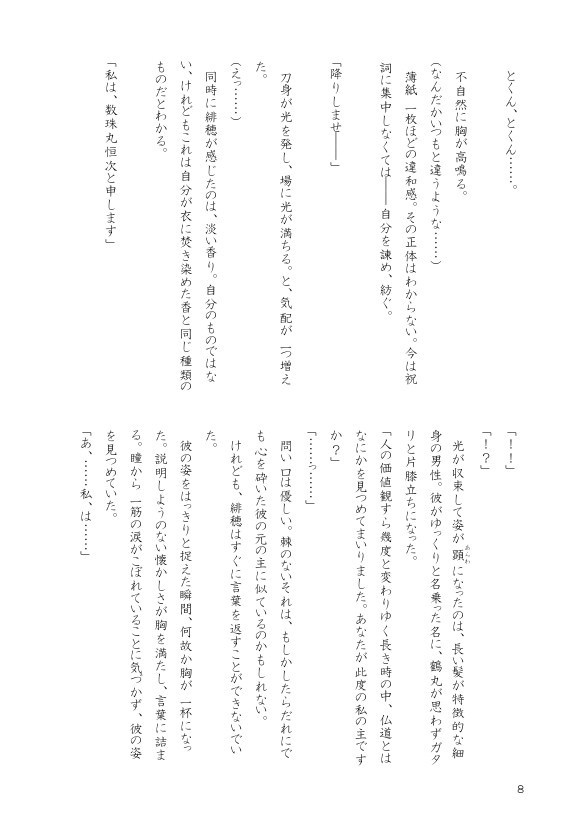 とくん、とくん……。
不自然に胸が高鳴る。
(なんだかいつもと違うような……)
薄紙一枚ほどの違和感。その正体はわからない。今は祝
詞に集中しなくては――自分を諫め、紡ぐ。
「降りしませ――」
刀身が光を発し、場に光が満ちる。と、気配が一つ増え
た。
(えっ……)
同時に緋穂が感じたのは、淡い香り。自分のものではな
い、けれどもこれは自分が衣に焚き染めた香と同じ種類の
ものだとわかる。
「私は、数珠丸恒次と申します」
「！！」
「！？」
光が収束して姿が顕あらわになったのは、長い髪が特徴的な細
身の男性。彼がゆっくりと名乗った名に、鶴丸が思わずガタ
リと片膝立ちになった。
「人の価値観すら幾度と変わりゆく長き時の中、仏道とは
なにかを見つめてまいりました。あなたが此度の私の主です
か？」
「……っ……」
問い口は優しい。棘のないそれは、もしかしたらだれにで
も心を砕いた彼の元の主に似ているのかもしれない。
けれども、緋穂はすぐに言葉を返すことができないでい
た。
彼の姿をはっきりと捉えた瞬間、何故か胸が一杯になっ
た。説明しようのない懐かしさが胸を満たし、言葉に詰ま
る。瞳から一筋の涙がこぼれていることに気づかず、彼の姿
を見つめていた。
「あ、……私、は……」
8